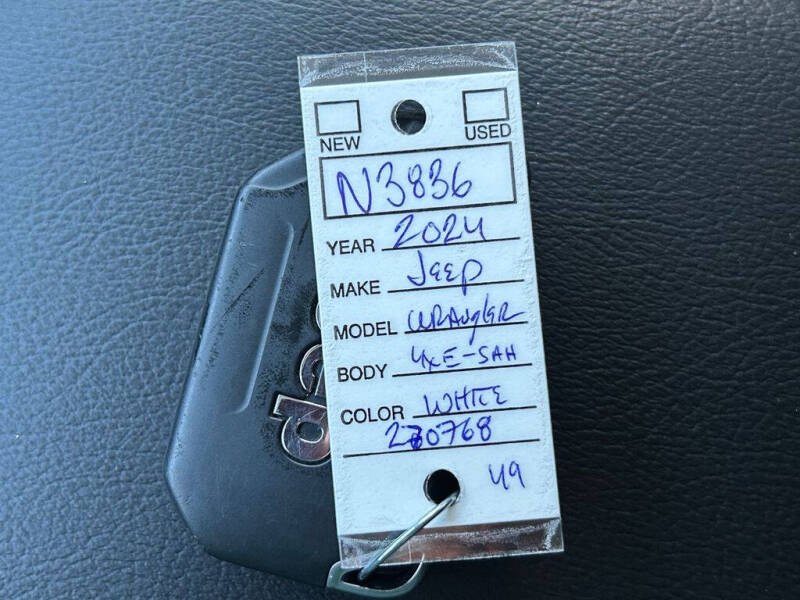 NEW USED
N3836
YEAR 2024
MAKE Jeep
MODEL WRANGLER
BODY 4XE-SAH
COLOR WHITE
49